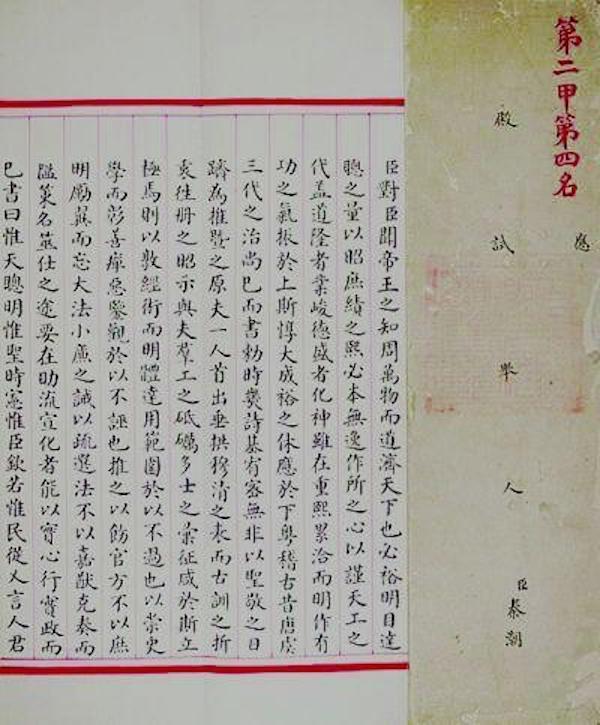 第二甲第四名
應
殿試舉人
臣秦潮
臣對臣聞帝王之知周萬物而道濟天下也必裕明目達
聰之量以昭庶績之熙必本無逸作所之心以謹天工之
代盖道隆者業峻德盛者化神雖在重熙累洽而明作有
功之氣振於上斯惇大成裕之休應於下粤稽古昔唐虞
三代之治尚已而書勅時幾詩基宥密無非以聖敬之日
躋為推暨之原夫一人首出垂拱穆清之表而古訓之折
衷徃册之昭示與夫羣工之砥礪多士之彙征咸於斯立
極焉則以敦經術而明體達用範圍於以不過也以崇史
學而彰善癉惡鑒觀於以不誣也推之以飭官方不以庶
明勵翼而忘大法小廉之誡以疏選法不以嘉猷克奏而
濫策名筮仕之途要在助流宣化者能以實心行實政而
已書曰惟天聰明惟聖時憲惟臣欽若惟民從乂言人君